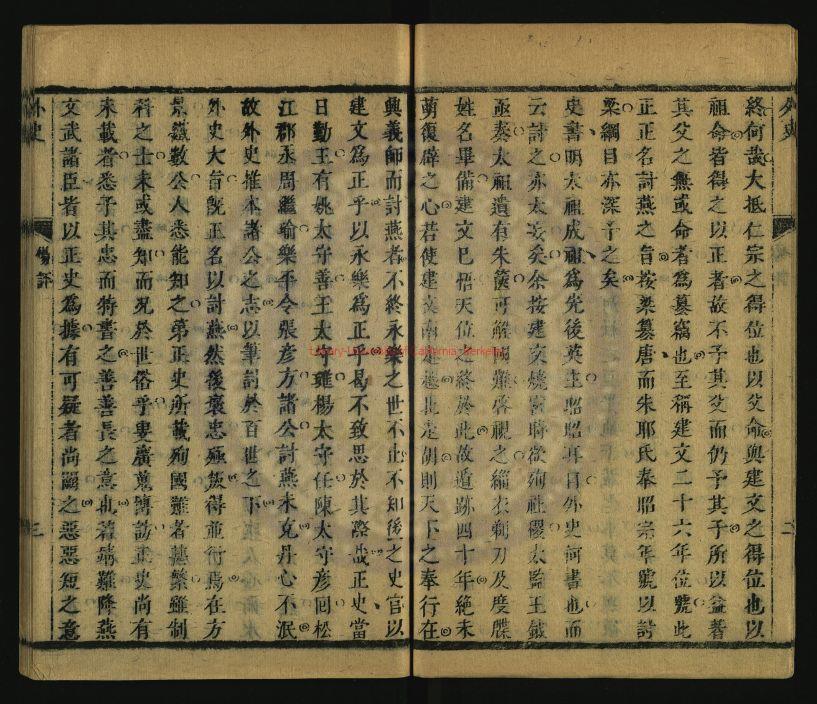 外史
終何哉大抵仁宗之得位也以父命與建文之得位也以
祖命皆得之以正者故不予其父而仍予其子所以益著
其父之無或命者為篡竊也至稱建文二十六年位號此
正正名討燕之旨按梁篡唐而朱耶氏奉昭宗年號以討
梁綱目亦深予之矣
史書明太祖成祖為先後英主昭昭耳目外史何書也而
云討之亦太妄矣余按建文燒宮時欲殉社稷太監王鉞
亟奏太祖遺有朱篋可解國難啓視之緇衣剃刀及度牒
姓名畢備建文已悟天位之終於此故遁跡四十年絕未
萌復辟之心若使建文南走越北走胡則天下之奉行在
二
興義師而討燕者不終永樂之世不止不知後之史官以
建文為正乎以永樂為正乎曷不致思於其際哉正史當
日勤王有姚太守善王太守璡楊太守任陳太守彥回松
江郡丞周繼瑜樂平令張彥方諸公討燕未克丹心不泯
故外史推本諸公之志以筆討於百世之下
外史大旨旣正名以討燕然後褒忠殛叛得並行焉在方
景鐵數公人悉能知之第正史所載殉國難者甚繁雖制
科之士未或盡知而況於世俗乎更廣蒐博訪正史尚有
未載者悉予其忠而特書之善善長之意也若靖難降燕
文武諸臣皆以正史為據有可疑者尚闕之惡惡短之意
外史
三